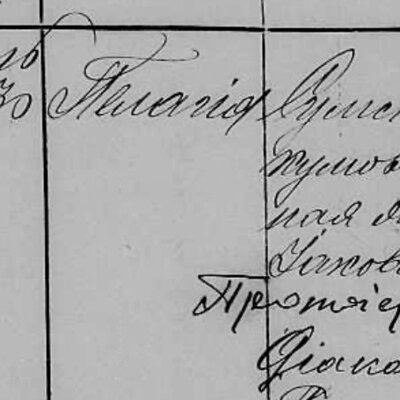 ль
30
Пелагія
Сумск
кумов
ная
Іаков
Протоіер
Діако